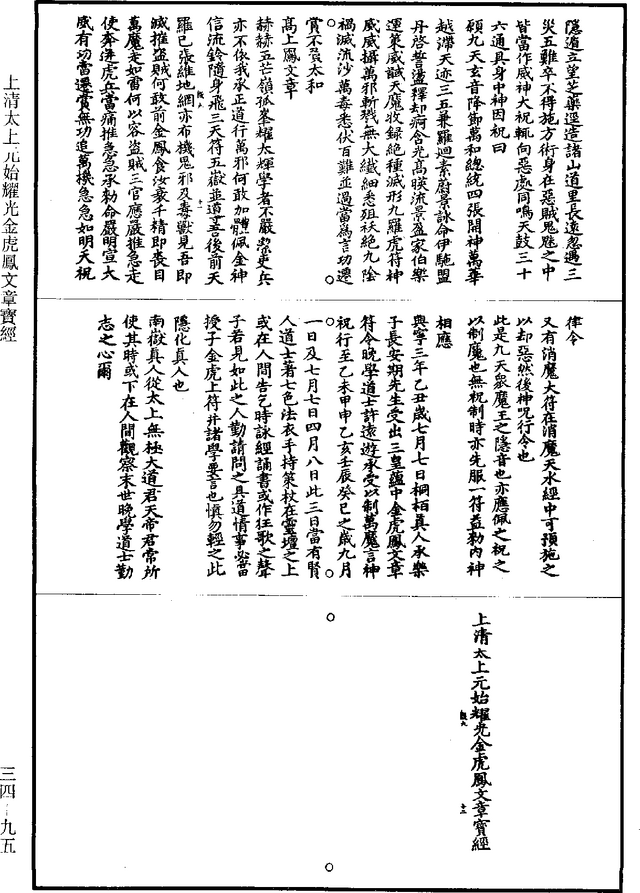 隱遁立望芝藥逕造諸山道里長遠忽遇三
災五難卒不得施方術身在惡賊鬼魅之中
皆當作威神大祝輒向惡處同鳴天鼓三十
六通具身中神因祝曰
願九天玄音降御萬和總統四張開神萬華
越滯天迹三五兼羅迴素蔚景詠命伊馳盟
丹啓誓盪釋却痾含光高暎流景盈家伯樂
運策威誠天魔收錄絕種滅形九羅虎符神
威威攝萬邪斬戮無大纖細悉殂袄絕九陰
禍滅流沙萬毒悉伏百難並過當為言功遷
賞不及太和
高上鳳文章
赫赫五芒嶺孤峯耀太煇學者不嚴祭吏兵
亦不依我承正道行萬邪何敢加體佩金神
信流鈴隨身飛三天符五嶽並導吾後前天
羅已張維地網亦布機鬼邪及毒獸見吾即
滅摧盜賊何敢前金鳳食汝衆千精即喪目
萬魔走如雷何以容盜賊三官應嚴推急走
使奔佛虎兵當痛推急急承勑命嚴明宣大
威有功當遷賞無功追萬機急急如明天祝
律令
又有消魔大符在消魔天水經中可預施之
以却惡然後神呪行令也
此是九天衆魔王之隱音也亦應佩之祝之
以制魔也無祝制時亦先服一符益勑內神
相應
興寧三年乙丑歲七月七日桐栢真人承樂
子長安期先生受出三皇蘊中金虎鳳文章
符令晚學道士許遠遊承受以制萬魔言神
祝行至乙未甲申乙亥壬辰癸巳之歲九月
一日及七月七日四月八日此三日當有賢
人道士著七色法衣手持策杖在靈壇之上
或在人間告乞時詠經誦書或作狂歌之聲
子若見如此之人勤請問之具道情事必當
授子金虎上符并諸學要言也慎勿輕之此
隱化真人也
南嶽真人從太上無極大道君天帝君常所
使其時或下在人間觀察末世晚學道士勤
志之心爾
上清太上元始耀光金虎鳳文章寶經
上清太上元始耀光金虎鳳文章寶經
三四－九五